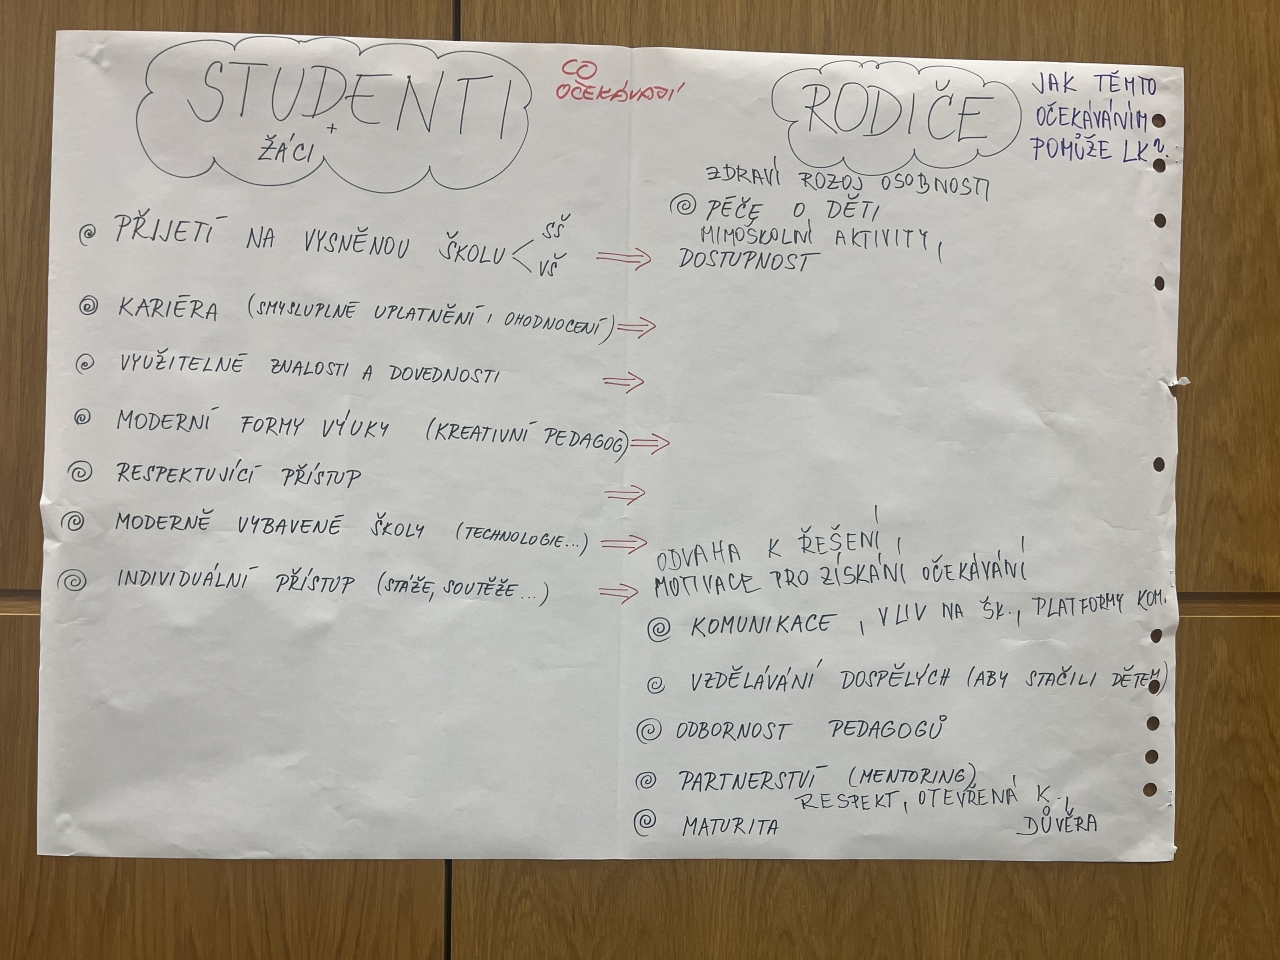 STUDENTI
+
ŽÁCI
CO
OČEKÁVAJÍ
RODIČE
JAK TĚMTO
OČEKÁVÁNÍM
POMŮŽE LK?
PŘIJETÍ NA VYSNĚNOU ŠKOLU < SŠ
VŠ
KARIÉRA (SMYSLUPLNÉ UPLATNĚNÍ, OHODNOCENÍ) ⇒
VYUŽITELNÉ ZNALOSTI A DOVEDNOSTI ⇒
MODERNÍ FORMY VÝUKY (KREATIVNÍ PEDAGOG) ⇒
RESPEKTUJÍCÍ PŘÍSTUP ⇒
MODERNĚ VYBAVENÉ ŠKOLY (TECHNOLOGIE...) ⇒
INDIVIDUÁLNÍ PŘÍSTUP (STÁŽE, SOUTĚŽE...) ⇒
ZDRAVÍ ROZOJ OSOBNOSTI
PÉČE O DĚTI
MIMOŠKOLNÍ AKTIVITY,
DOSTUPNOST
ODVAHA K ŘEŠENÍ,
MOTIVACE PRO ZÍSKÁNÍ OČEKÁVÁNÍ
KOMUNIKACE, VLIV NA ŠK., PLATFORMY KOM.
VZDĚLÁVÁNÍ DOSPĚLÝCH (ABY STAČILI DĚTEM)
ODBORNOST PEDAGOGŮ
PARTNERSTVÍ (MENTORING)
RESPEKT, OTEVŘENÁ K.,
MATURITA DŮVĚRA